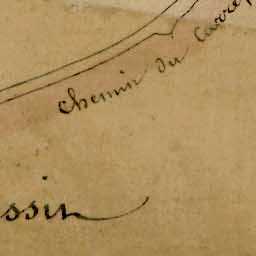 chemin du Carre
ssin